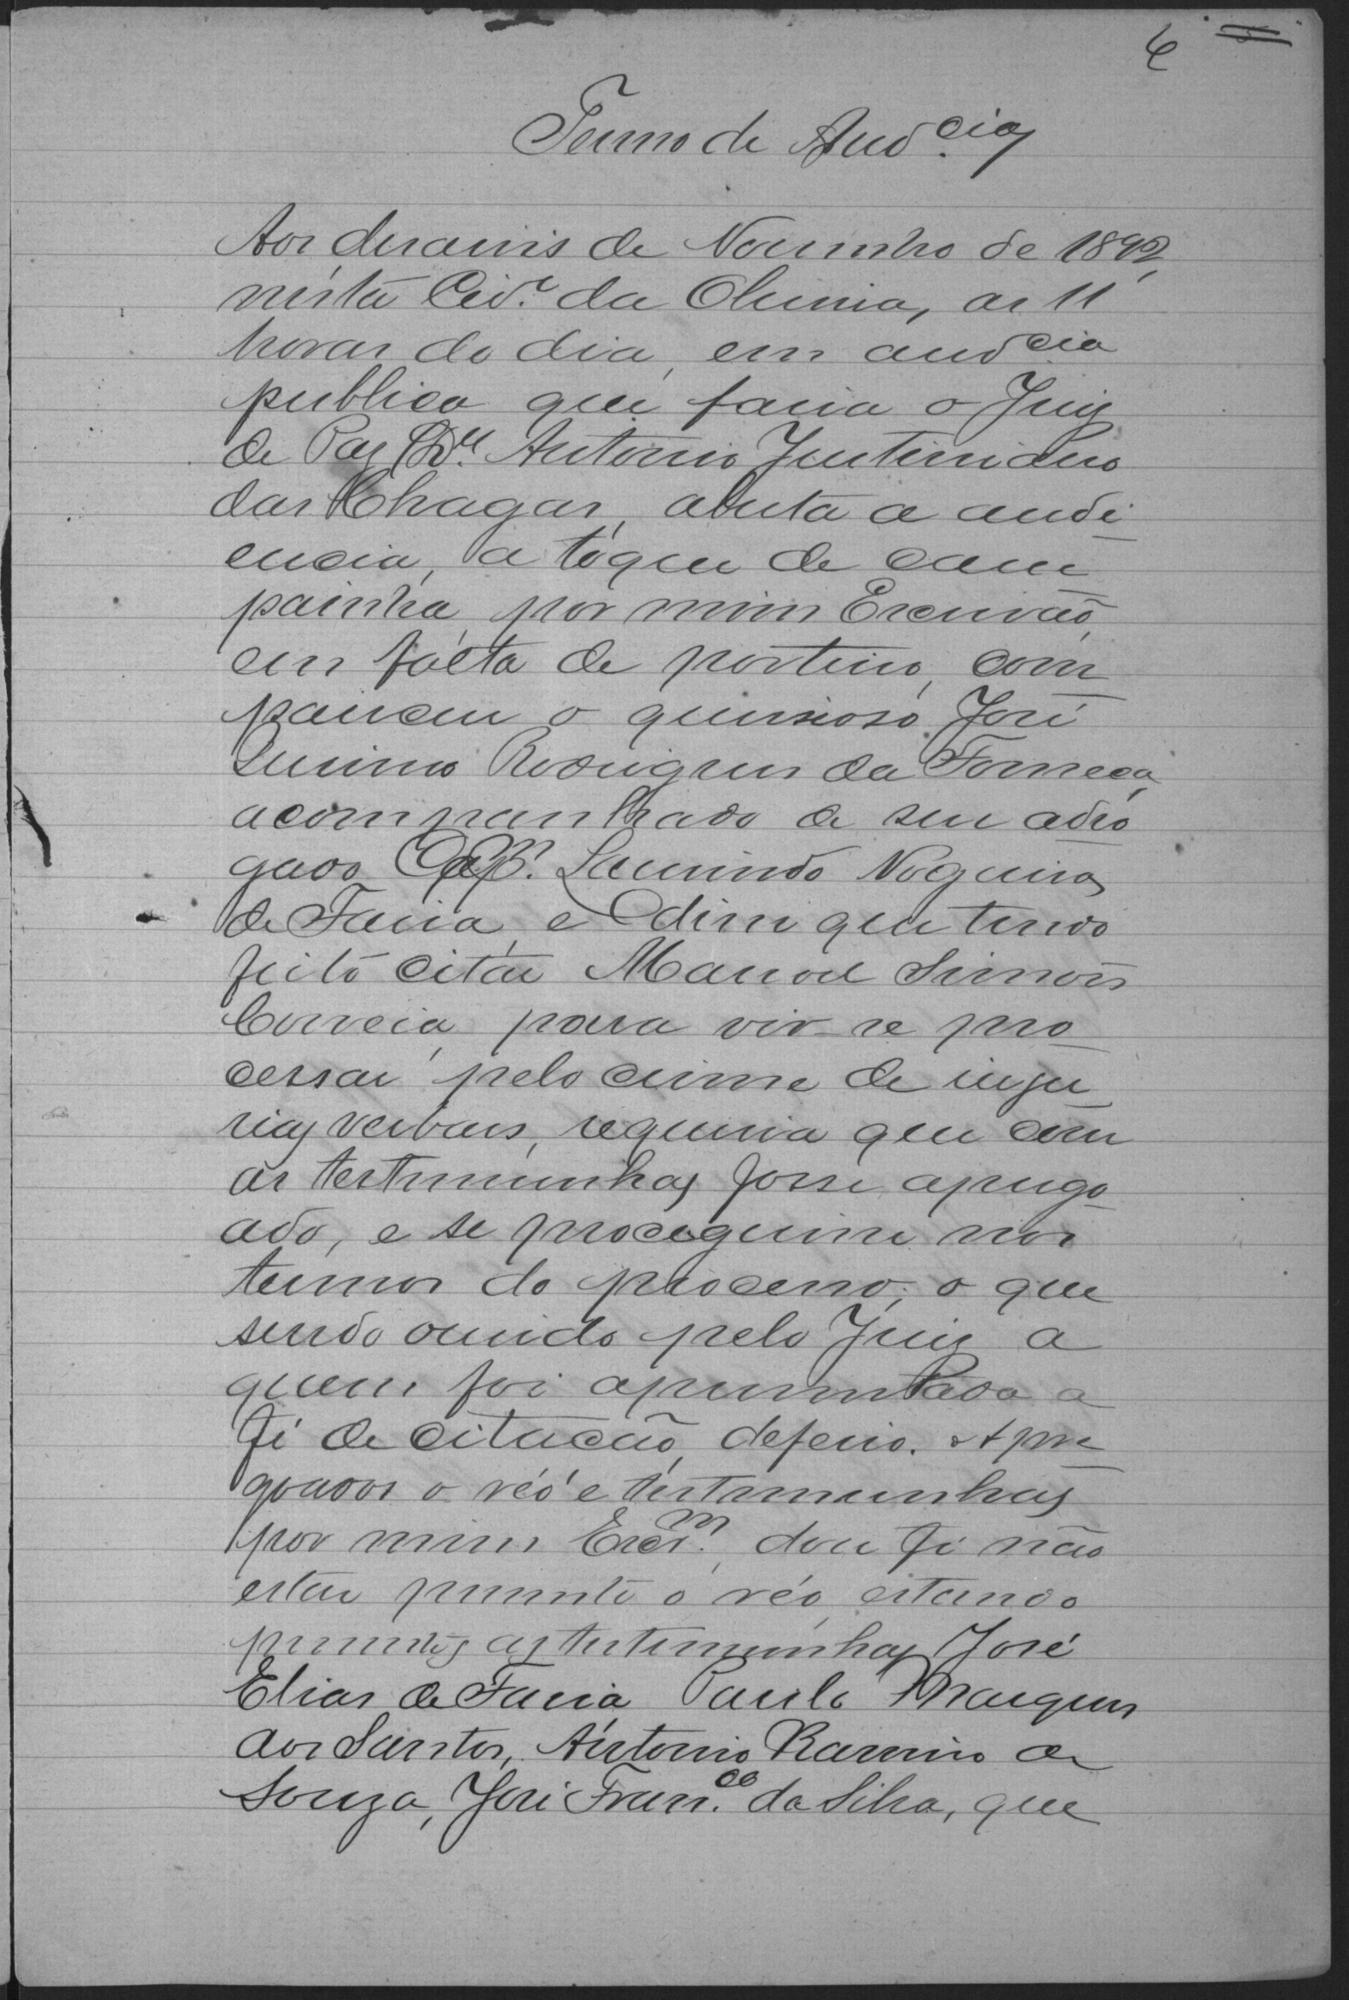 6
Termo de Aud.cia
Aos deseseis de Novembro de 1892,
nesta Cid.e da Oliveira, as 11
horas do dia, em audcia
publica que fasia o Juiz
de Paz Dr. Antonio Justiniano
das Chagas, aberta a audi
encia, a tóque de cam
painha, por mim Escrivão,
em falta de porteiro, com
pareceu o queixoso José
Rodrigues da Fonseca,
acompanhado de seu advo
gado Cap.m Laurindo Nogueira
de Faria, e disse que tendo
feito citar Manoel Simões
Correia, para vir se pro
cessar pelo crime de inju
rias verbaes, requeria que com
as testemunhas fosse aprego
ado, e se proceguisse nos
termos do processo; o que
sendo ouvido pelo Juiz a
quem foi apresentada a
fé de citacão, deferio. Apre
goados o réo e testemunhas
por mim Escr.m, dou fé não
estar presente o réo, estando
presentes as testemunhas José
Elias de Faria, Paulo Marques
dos Santos, Antonio Ramiro de
Souza, José Fran.co da Silva, que